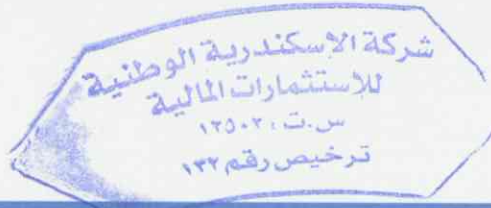 شركة الاسكندرية الوطنية
للاستثمارات المالية
س.ت: ١٣٥٠٢
ترخيص رقم ١٣٢